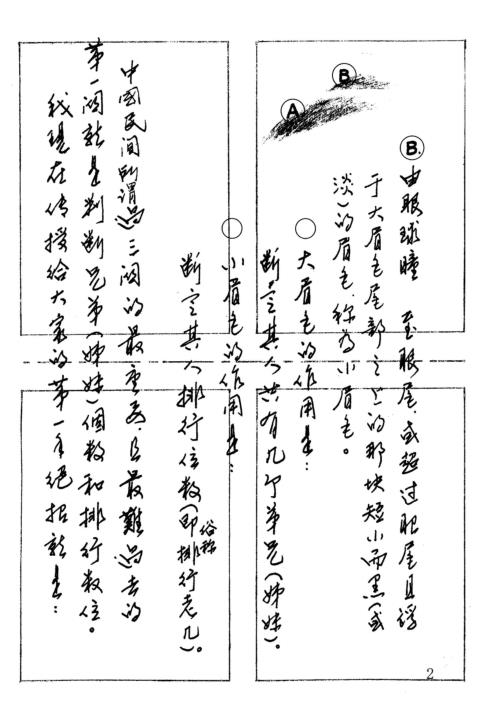 B
A
B. 由眼球瞳 至眼尾或超过眼尾且浮
于大眉毛尾部之上的那块短小而黑(或
淡)的眉毛,称为小眉毛。
○大眉毛的作用是:
断定其人共有几个弟兄(姊妹)。
○小眉毛的作用是:
断定其人排行位数(即俗称排行老几)。
中國民间所谓过三関的最重要且最難过去的
第一関就是判断兄弟(姊妹)個数和排行数位。
我现在传授给大家的第一手绝招就是:
2